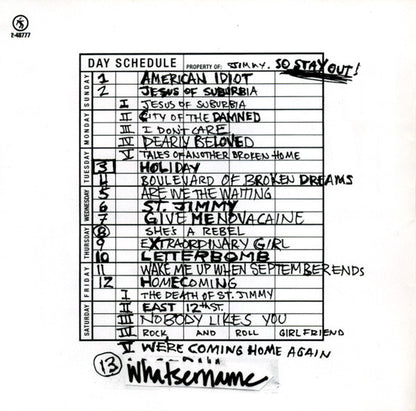 2-48777
DAY SCHEDULE PROPERTY OF: JIMMY. SO STAY OUT!
SUNDAY
MONDAY
TUESDAY
WEDNESDAY
THURSDAY
FRIDAY
SATURDAY
1 AMERICAN IDIOT
2 JESUS OF SUBURBIA
I JESUS OF SUBURBIA
II CITY OF THE DAMNED
III I DON'T CARE
IV DEARLY BELOVED
V TALES OF ANOTHER BROKEN HOME
3 HOLIDAY
4 BOULEVARD OF BROKEN DREAMS
5 ARE WE THE WAITING
6 ST. JIMMY
7 GIVE ME NOVACAINE
8 SHE'S A REBEL
9 EXTRAORDINARY GIRL
10 LETTERBOMB
11 WAKE ME UP WHEN SEPTEMBER ENDS
12 HOMECOMING
I THE DEATH OF ST. JIMMY
II EAST 12TH ST.
III NOBODY LIKES YOU
IV ROCK AND ROLL GIRLFRIEND
V WE'RE COMING HOME AGAIN
13 Whatsername